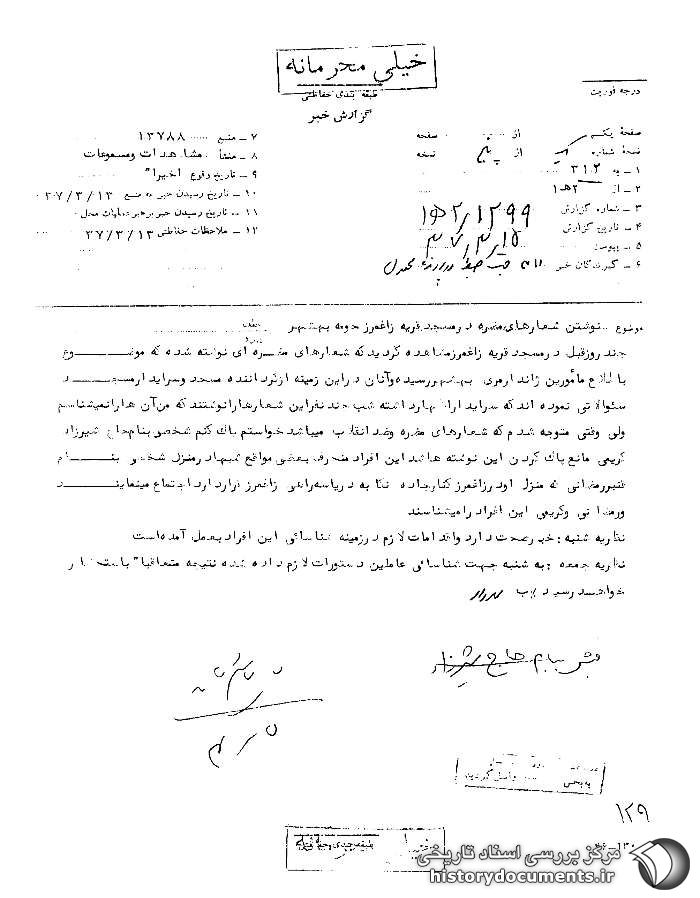 خیلی محرمانه
طبقه بندی حفاظتی
درجه فوریت
گزارش خبر
صفحه یک از صفحه
نسخه شماره یک از پنج نسخه
۱ ـ به ۳۱۲
۲ ـ از ۲ ه‍ ۱
۳ ـ شماره گزارش
۴ ـ تاریخ گزارش
۵ ـ پیوست
۶ ـ گیرندگان خبر
۷ ـ منبع ۱۳۷۸۸
۸ ـ منشأ مشاهدات و مسموعات
۹ ـ تاریخ وقوع اخیرا"
۱۰ ـ تاریخ رسیدن خبر به منبع ۳۷/۳/۱۳
۱۱ ـ تاریخ رسیدن خبر برهبر عملیات محل
۱۲ ـ ملاحظات حفاظتی ۳۷/۳/۱۳
موضوع ـ نوشتن شعارهای مضره در مسجد قریه زاغمرز حومه بهشهر
چند روز قبل در مسجد قریه زاغمرز مشاهده گردید که شعارهای مضره ای نوشته شده که موضوع
باطلاع مأمورین ژاندارمری بهشهر رسیده وآنان در این زمینه از گرداننده مسجد وسرایدار مسجد
سئوالاتی نموده اند که سرایدار اظهار داشته شب چند نفر این شعارها را نوشتند که من آن ها را نمیشناسم
ولی وقتی متوجه شدم که شعارهای مضره وضد انقلاب میباشد خواستم پاک کنم شخصی بنام حاج شیرزاد
کریمی مانع پاک کردن این نوشته ها شد این افراد منحرف بعضی مواقع شبها در منزل شخصی بنام
قنبر رمضانی که منزل او در زاغمرز کنار جاده نکا به در یاسه راهی زاغمرز قرار دارد اجتماع مینمایند
ورمضانی وکریمی این افراد را میشناسند
نظریه شنبه : خبر صحت دارد واقدامات لازم در زمینه شناسائی این افراد بعمل آمده است
نظریه جمعه : به شنبه جهت شناسائی عاملین دستورات لازم داده شده نتیجه متعاقبا" باستحضار
خواهد رسید
فیش بنام حاج شیرزاد
۱۲۹
طبقه بندی حفاظتی
مرکز بررسی اسناد تاریخی
historydocuments.ir